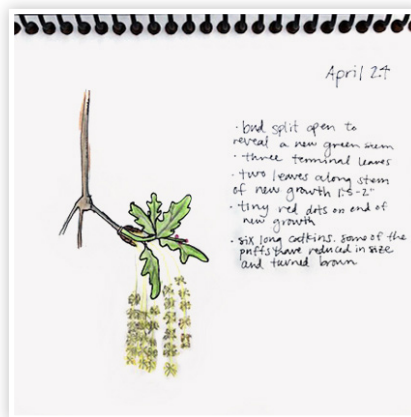 April 24
· bud split open to
reveal a new green stem
· three terminal leaves
· two leaves along stem
of new growth 1.5-2"
· tiny red dots on end of
new growth
· six long catkins. some of the
puffs have reduced in size
and turned brown